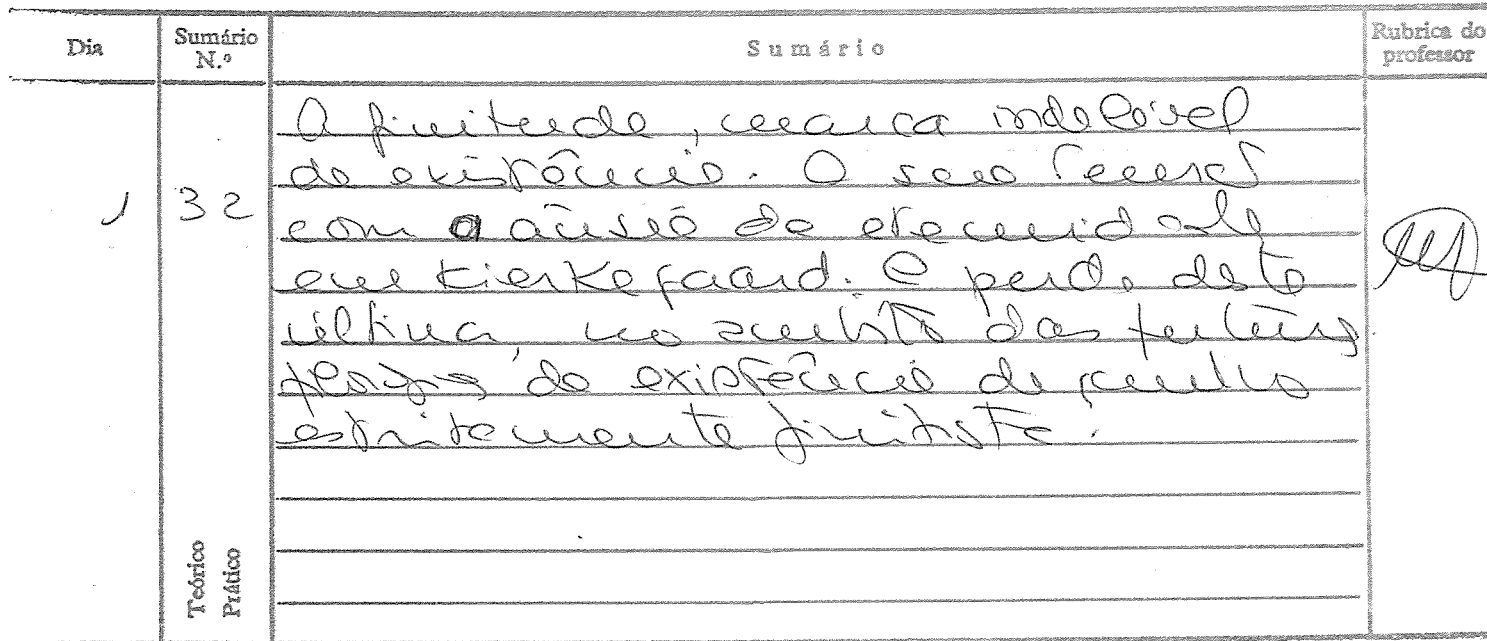 Dia
Sumário N.º
Sumário
Rubrica do professor
1
32
A finitude, marca indelével
da existência. O seu
com a ânsia de eternidade
em Kierkegaard. A perda desta
última, no âmbito das
da existência de cunho
estritamente finitista.
Teórico
Prático